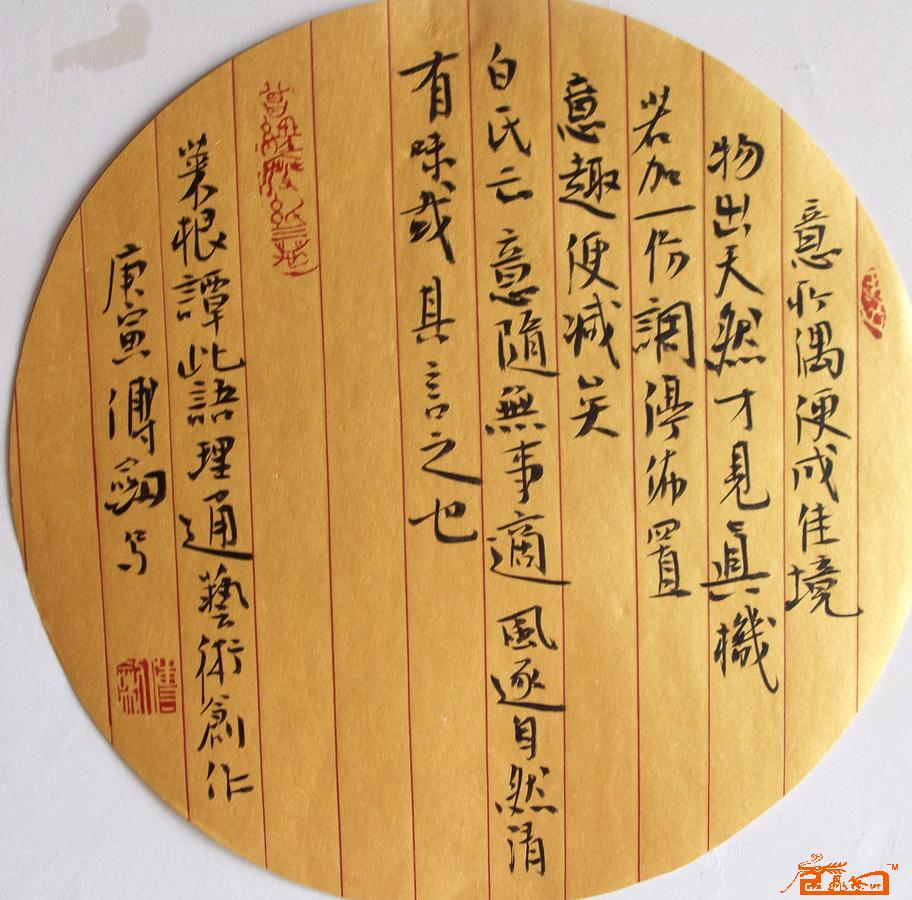 意所偶便成佳境
物出天然才見真機
若加一份調停佈置
意趣便減矣
白氏云意隨無事適風逐自然清
有味哉其言之也
菜根譚此語理通藝術創作
庚寅傅劔写